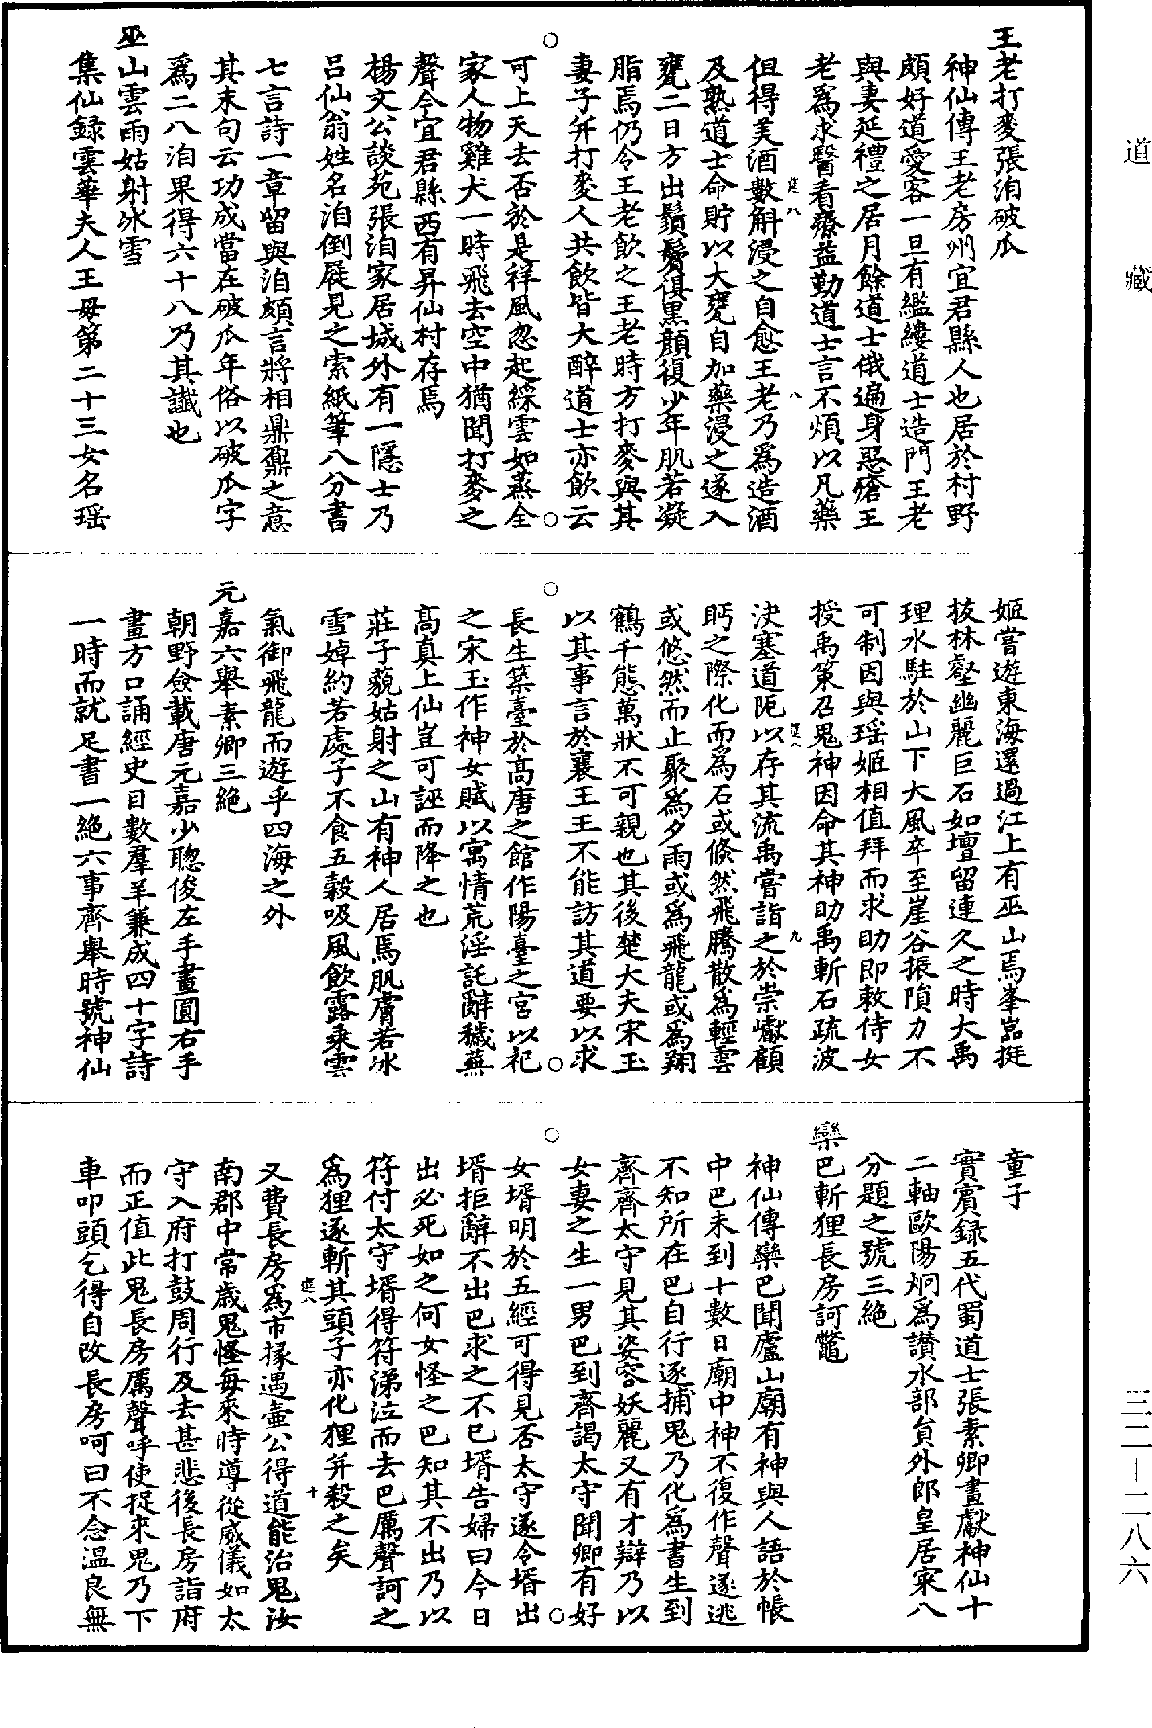 道藏
王老打麥張洎破瓜
神仙傳王老房州宜君縣人也居於村野
頗好道愛客一旦有繿縷道士造門王老
與妻延禮之居月餘道士俄遍身惡瘡王
老爲求醫看療益勤道士言不煩以凡藥
但得美酒數斛浸之自愈王老乃爲造酒
及熟道士命貯以大甕自加藥浸之遂入
甕二日方出鬚髮俱黑顔復少年肌若凝
脂焉仍令王老飲之王老時方打麥與其
妻子并打麥人共飲皆大醉道士亦飲云
可上天去否於是祥風忽起綵雲如蒸全
家人物雞犬一時飛去空中猶聞打麥之
聲今宜君縣西有昇仙村存焉
楊文公談苑張洎家居城外有一隱士乃
呂仙翁姓名洎倒屣見之索紙筆八分書
七言詩一章留與洎頗言將相鼎鼐之意
其末句云功成當在破瓜年俗以破瓜字
爲二八洎果得六十八乃其讖也
巫山雲雨姑射冰雪
集仙録雲華夫人王母第二十三女名瑶
姬嘗遊東海還過江上有巫山焉峯嵓挺
拔林壑幽麗巨石如壇留連久之時大禹
理水駐於山下大風卒至崖谷振隕力不
可制因與瑶姬相值拜而求助即敕侍女
授禹策召鬼神因命其神助禹斬石疏波
決塞道阨以存其流禹嘗詣之於崇巘顧
眄之際化而爲石或倏然飛騰散爲輕雲
或悠然而止聚爲夕雨或爲飛龍或爲翔
鶴千態萬狀不可親也其後楚大夫宋玉
以其事言於襄王王不能訪其道要以求
長生築臺於高唐之館作陽臺之宮以祀
之宋玉作神女賦以寓情荒淫託辭穢蕪
高真上仙豈可誣而降之也
莊子藐姑射之山有神人居焉肌膚若冰
雪婥約若處子不食五榖吸風飲露乘雲
氣御飛龍而遊乎四海之外
元嘉六舉素卿三絶
朝野僉載唐元嘉少聰俊左手畫圓右手
畫方口誦經史目數羣羊兼成四十字詩
一時而就足書一絶六事齊舉時號神仙
童子
實賓録五代蜀道士張素卿畫獻神仙十
二軸歐陽炯爲讃水部貟外郎皇居寀八
分題之號三絶
欒巴斬狸長房訶鼈
神仙傳欒巴聞廬山廟有神與人語於帳
中巴未到十數日廟中神不復作聲遂逃
不知所在巴自行逐捕鬼乃化爲書生到
齊齊太守見其姿容妖麗又有才辯乃以
女妻之生一男巴到齊謁太守聞卿有好
女壻明於五經可得見否太守遂令壻出
壻拒辭不出巴求之不已壻告婦曰今日
出必死如之何女怪之巴知其不出乃以
符付太守壻得符涕泣而去巴厲聲訶之
爲狸遂斬其頭子亦化狸并殺之矣
又費長房爲市掾遇壷公得道能治鬼汝
南郡中常歳鬼怪每來時導從威儀如太
守入府打鼓周行及去甚悲後長房詣府
而正值此鬼長房厲聲呼使捉來鬼乃下
車叩頭乞得自改長房呵曰不念温良無
三二—二八六